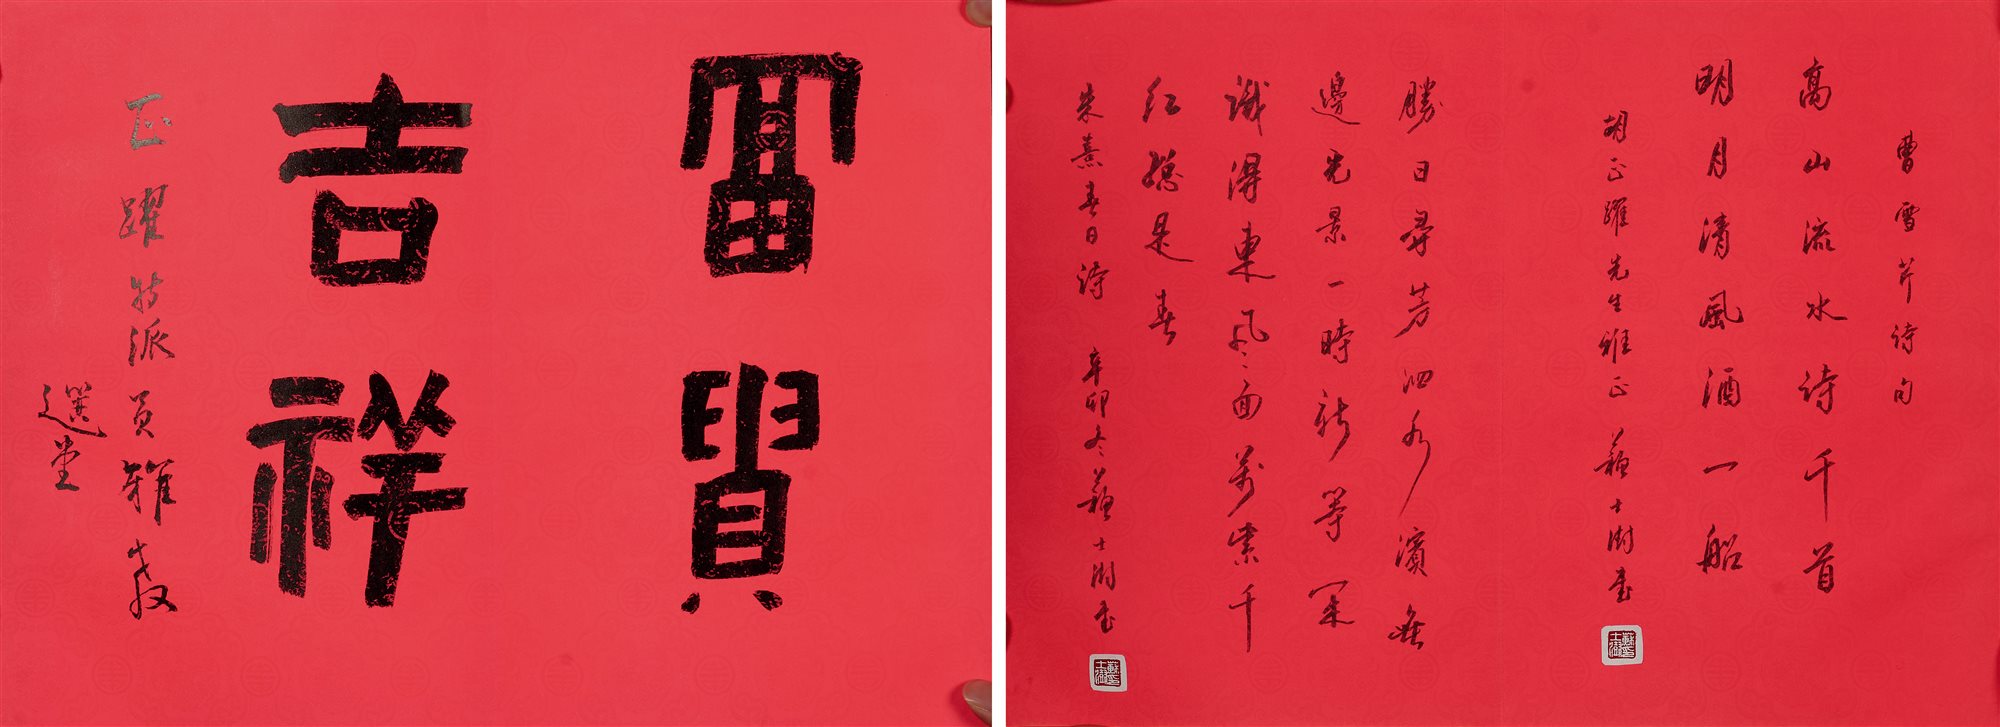 富貴
吉祥
正躍特派員雅教
選堂
曹雪芹诗句
高山流水诗千首
明月清風酒一船
胡正躍先生雅正 蘇士澍書
勝日尋芳泗水濱無
邊光景一時新等閑
識得東風面萬紫千
红總是春
朱熹春日诗 辛卯冬蘇士澍書